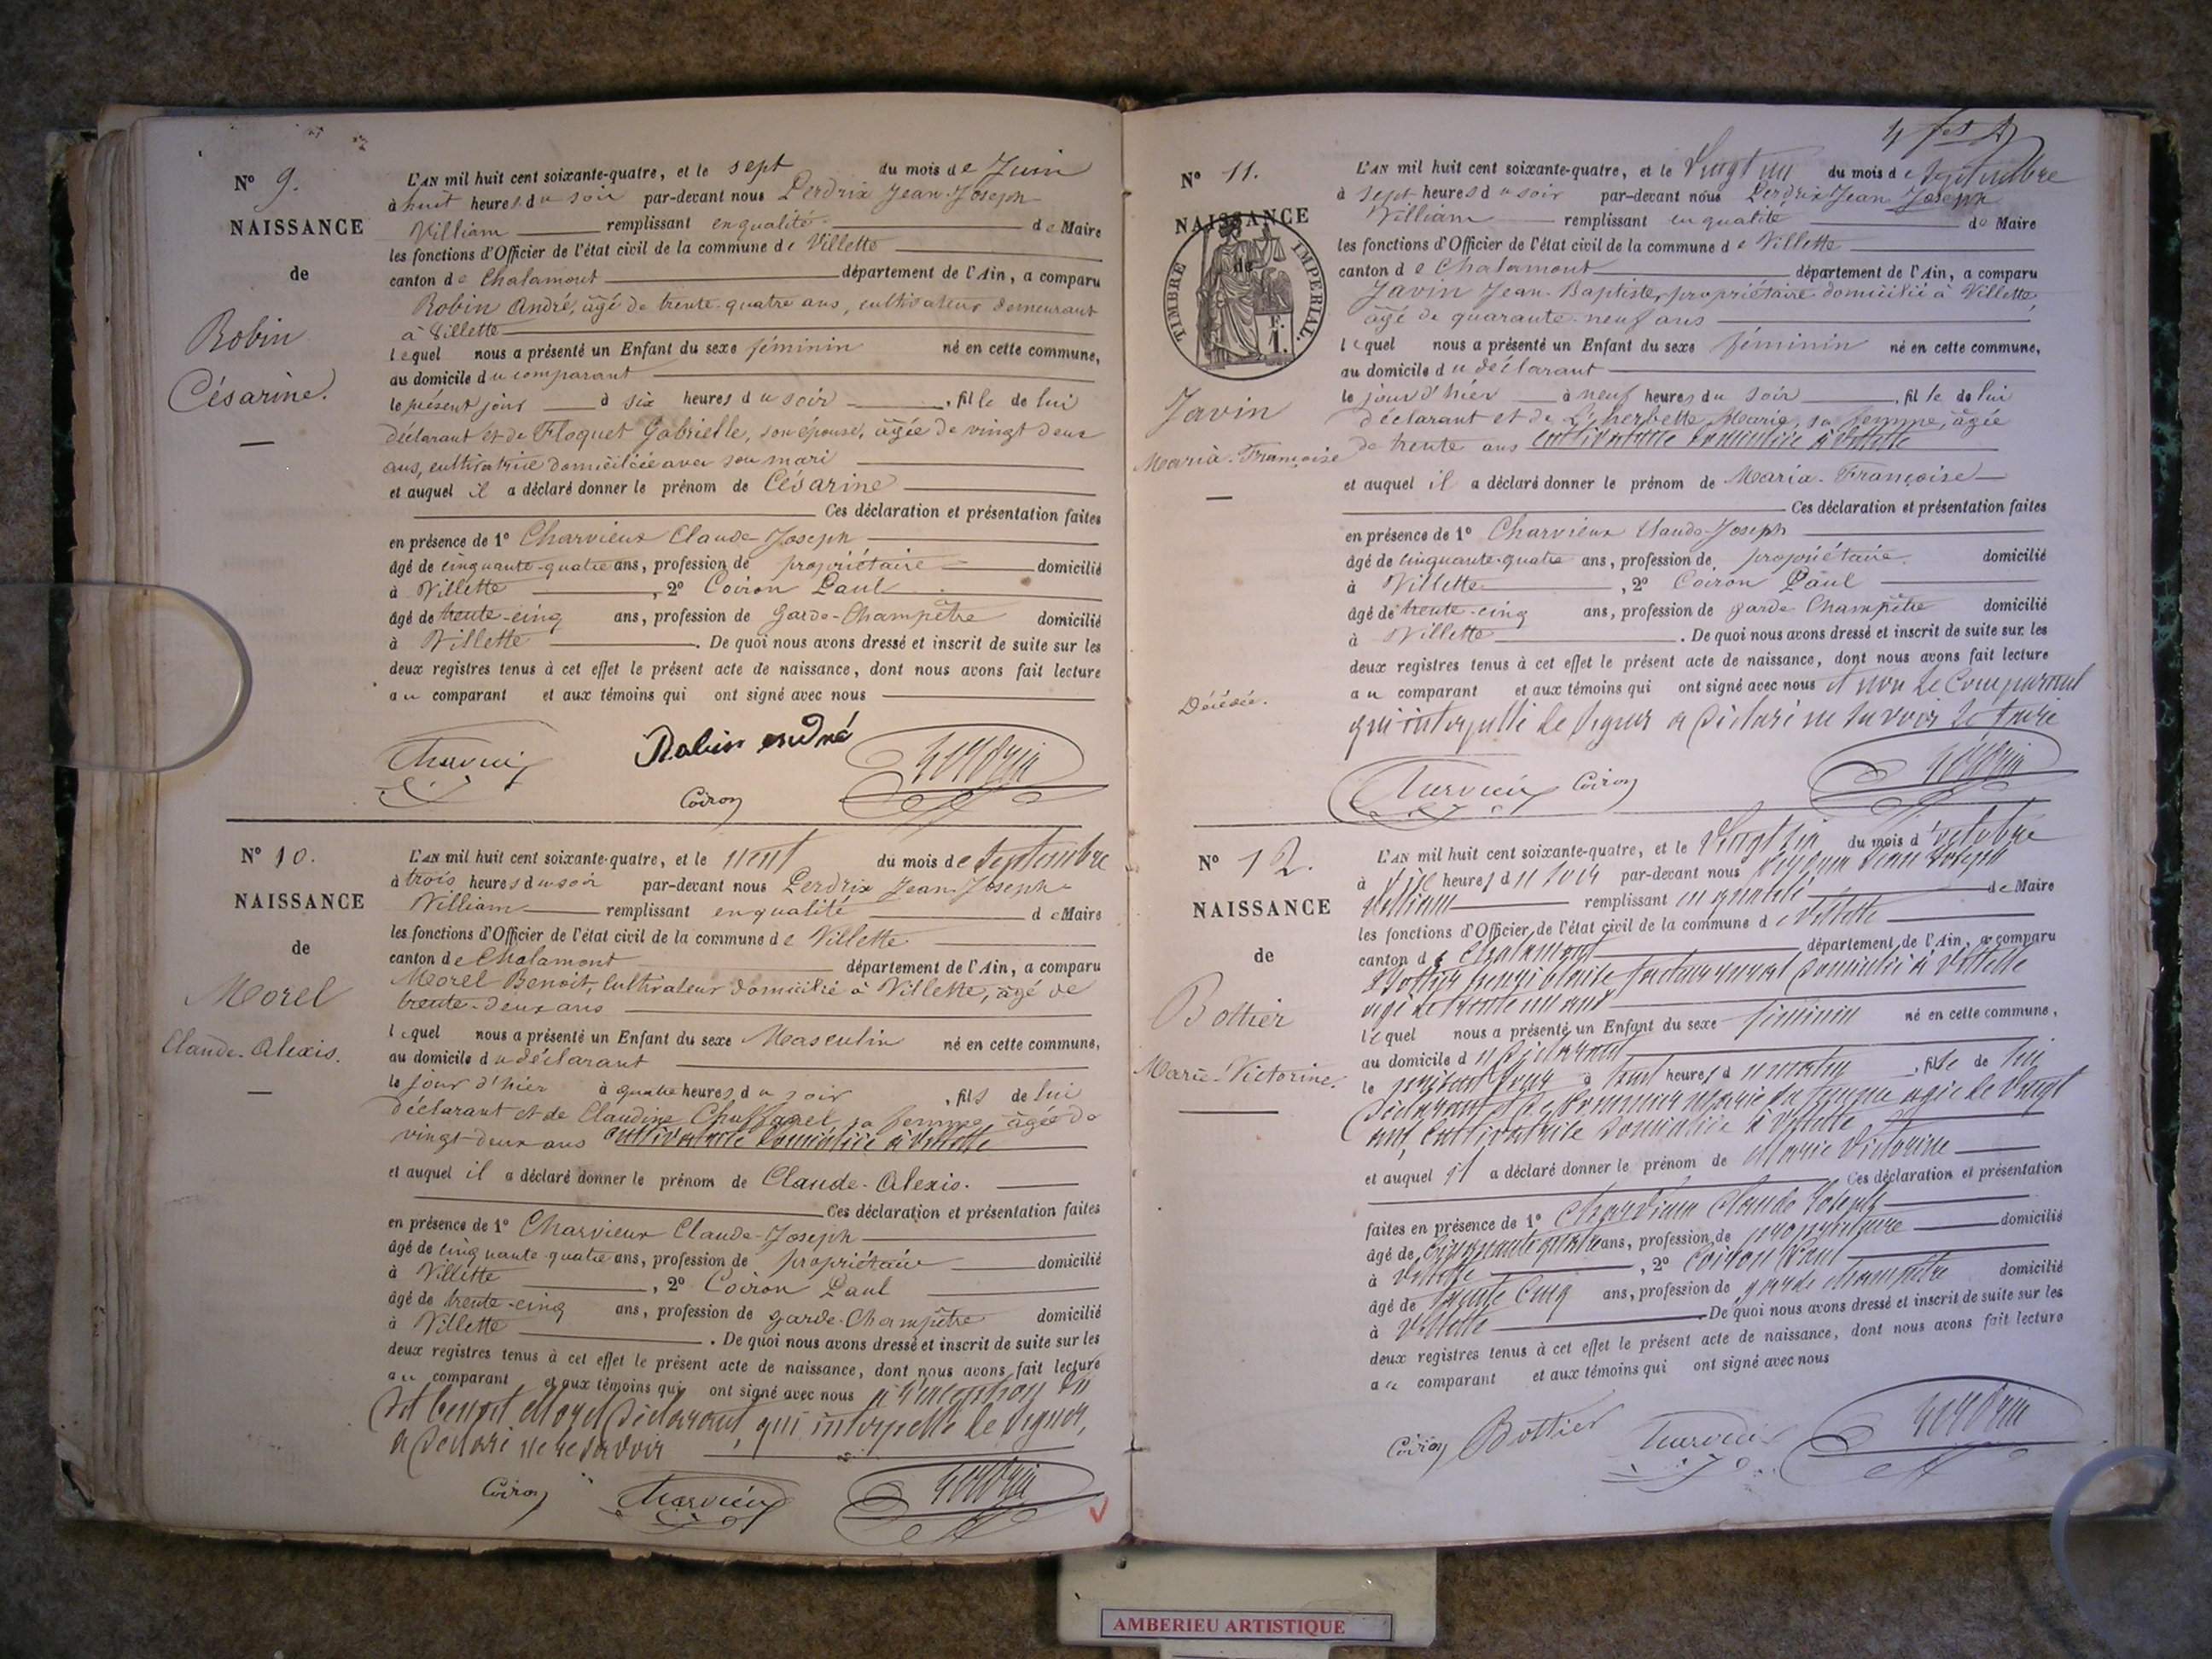 N° 9.
NAISSANCE
de
Robin
Césarine.
L'AN mil huit cent soixante-quatre, et le sept du mois de Juin
à huit heures du soir par-devant nous Perdrix Jean-Joseph
William remplissant en qualité de Maire
les fonctions d'Officier de l'état civil de la commune de Villette
canton de Chalamont département de l'Ain, a comparu
Robin André, âgé de trente-quatre ans, cultivateur demeurant
à Villette
lequel nous a présenté un Enfant du sexe féminin né en cette commune,
au domicile du comparant
le présent jour à six heures du soir, fille de lui
déclarant et de Floquet Gabrielle, son épouse, âgée de vingt deux
ans, cultivatrice domiciliée avec son mari
et auquel il a déclaré donner le prénom de Césarine
Ces déclaration et présentation faites
en présence de 1° Charvieux Claude-Joseph
âgé de cinquante-quatre ans, profession de propriétaire domicilié
à Villette, 2° Coiron Paul
âgé de trente-cinq ans, profession de Garde-Champêtre domicilié
à Villette. De quoi nous avons dressé et inscrit de suite sur les
deux registres tenus à cet effet le présent acte de naissance, dont nous avons fait lecture
au comparant et aux témoins qui ont signé avec nous
Charvieux Robin andré Perdrix
Coiron
N° 10.
NAISSANCE
de
Morel
Claude-Alexis.
L'AN mil huit cent soixante-quatre, et le neuf du mois de Septembre
à trois heures du soir par-devant nous Perdrix Jean-Joseph
William remplissant en qualité de Maire
les fonctions d'Officier de l'état civil de la commune de Villette
canton de Chalamont département de l'Ain, a comparu
Morel Benoit, cultivateur domicilié à Villette, âgé de
trente-deux ans
lequel nous a présenté un Enfant du sexe Masculin né en cette commune,
au domicile du déclarant
le jour d'hier à quatre heures du soir, fils de lui
déclarant et de Claudine sa femme âgée de
vingt-deux ans cultivatrice domiciliée à Villette
et auquel il a déclaré donner le prénom de Claude-Alexis.
Ces déclaration et présentation faites
en présence de 1° Charvieux Claude-Joseph
âgé de cinquante-quatre ans, profession de propriétaire domicilié
à Villette, 2° Coiron Paul
âgé de trente-cinq ans, profession de garde-Champêtre domicilié
à Villette. De quoi nous avons dressé et inscrit de suite sur les
deux registres tenus à cet effet le présent acte de naissance, dont nous avons fait lecture
au comparant et aux témoins qui ont signé avec nous à l'exception du
dit benoit Morel déclarant, qui interpellé de signer,
a déclaré ne le savoir
Coiron Charvieux Perdrix
N° 11.
NAISSANCE
de
TIMBRE IMPERIAL.
F.
1.
Javin
Maria-Françoise
Décédée.
L'AN mil huit cent soixante-quatre, et le Vingt un du mois de Septembre
à sept heures du soir par-devant nous Perdrix Jean Joseph
William remplissant en qualité de Maire
les fonctions d'Officier de l'état civil de la commune de Villette
canton de Chalamont département de l'Ain, a comparu
Javin Jean-Baptiste, propriétaire domicilié à Villette,
âgé de quarante-neuf ans
lequel nous a présenté un Enfant du sexe féminin né en cette commune,
au domicile du déclarant
le jour d'hier à neuf heures du soir, fille de lui
déclarant et de L'herbette Marie, sa femme, âgée
de trente ans cultivatrice domiciliée à Villette
et auquel il a déclaré donner le prénom de Maria-Françoise
Ces déclaration et présentation faites
en présence de 1° Charvieux Claude-Joseph
âgé de cinquante-quatre ans, profession de propriétaire domicilié
à Villette, 2° Coiron Paul
âgé de trente-cinq ans, profession de garde Champêtre domicilié
à Villette. De quoi nous avons dressé et inscrit de suite sur les
deux registres tenus à cet effet le présent acte de naissance, dont nous avons fait lecture
au comparant et aux témoins qui ont signé avec nous et non le Comparant
qui interpellé de signer a déclaré ne savoir le faire
Charvieux Coiron Perdrix
N° 12.
NAISSANCE
de
Bottier
Marie-Victorine.
L'AN mil huit cent soixante-quatre, et le Vingt six du mois d'octobre
à heures du soir par-devant nous Perdrix Jean Joseph
William remplissant en qualité de Maire
les fonctions d'Officier de l'état civil de la commune de Villette
canton de Chalamont département de l'Ain, a comparu
Bottier henri facteur rural domicilié à Villette
âgé de trente un ans
lequel nous a présenté un Enfant du sexe féminin né en cette commune,
au domicile du déclarant
le présent jour à heures du matin, fille de lui
déclarant et de Marie sa femme agée de Vingt
ans, cultivatrice domiciliée à Villette
et auquel il a déclaré donner le prénom de Marie Victorine
Ces déclaration et présentation
faites en présence de 1° Charvieux Claude Joseph
âgé de Cinquante quatre ans, profession de propriétaire domicilié
à Villette, 2° Coiron Paul
âgé de trente Cinq ans, profession de garde champêtre domicilié
à Villette. De quoi nous avons dressé et inscrit de suite sur les
deux registres tenus à cet effet le présent acte de naissance, dont nous avons fait lecture
au comparant et aux témoins qui ont signé avec nous
Coiron Bottier Charvieux Perdrix
AMBERIEU ARTISTIQUE